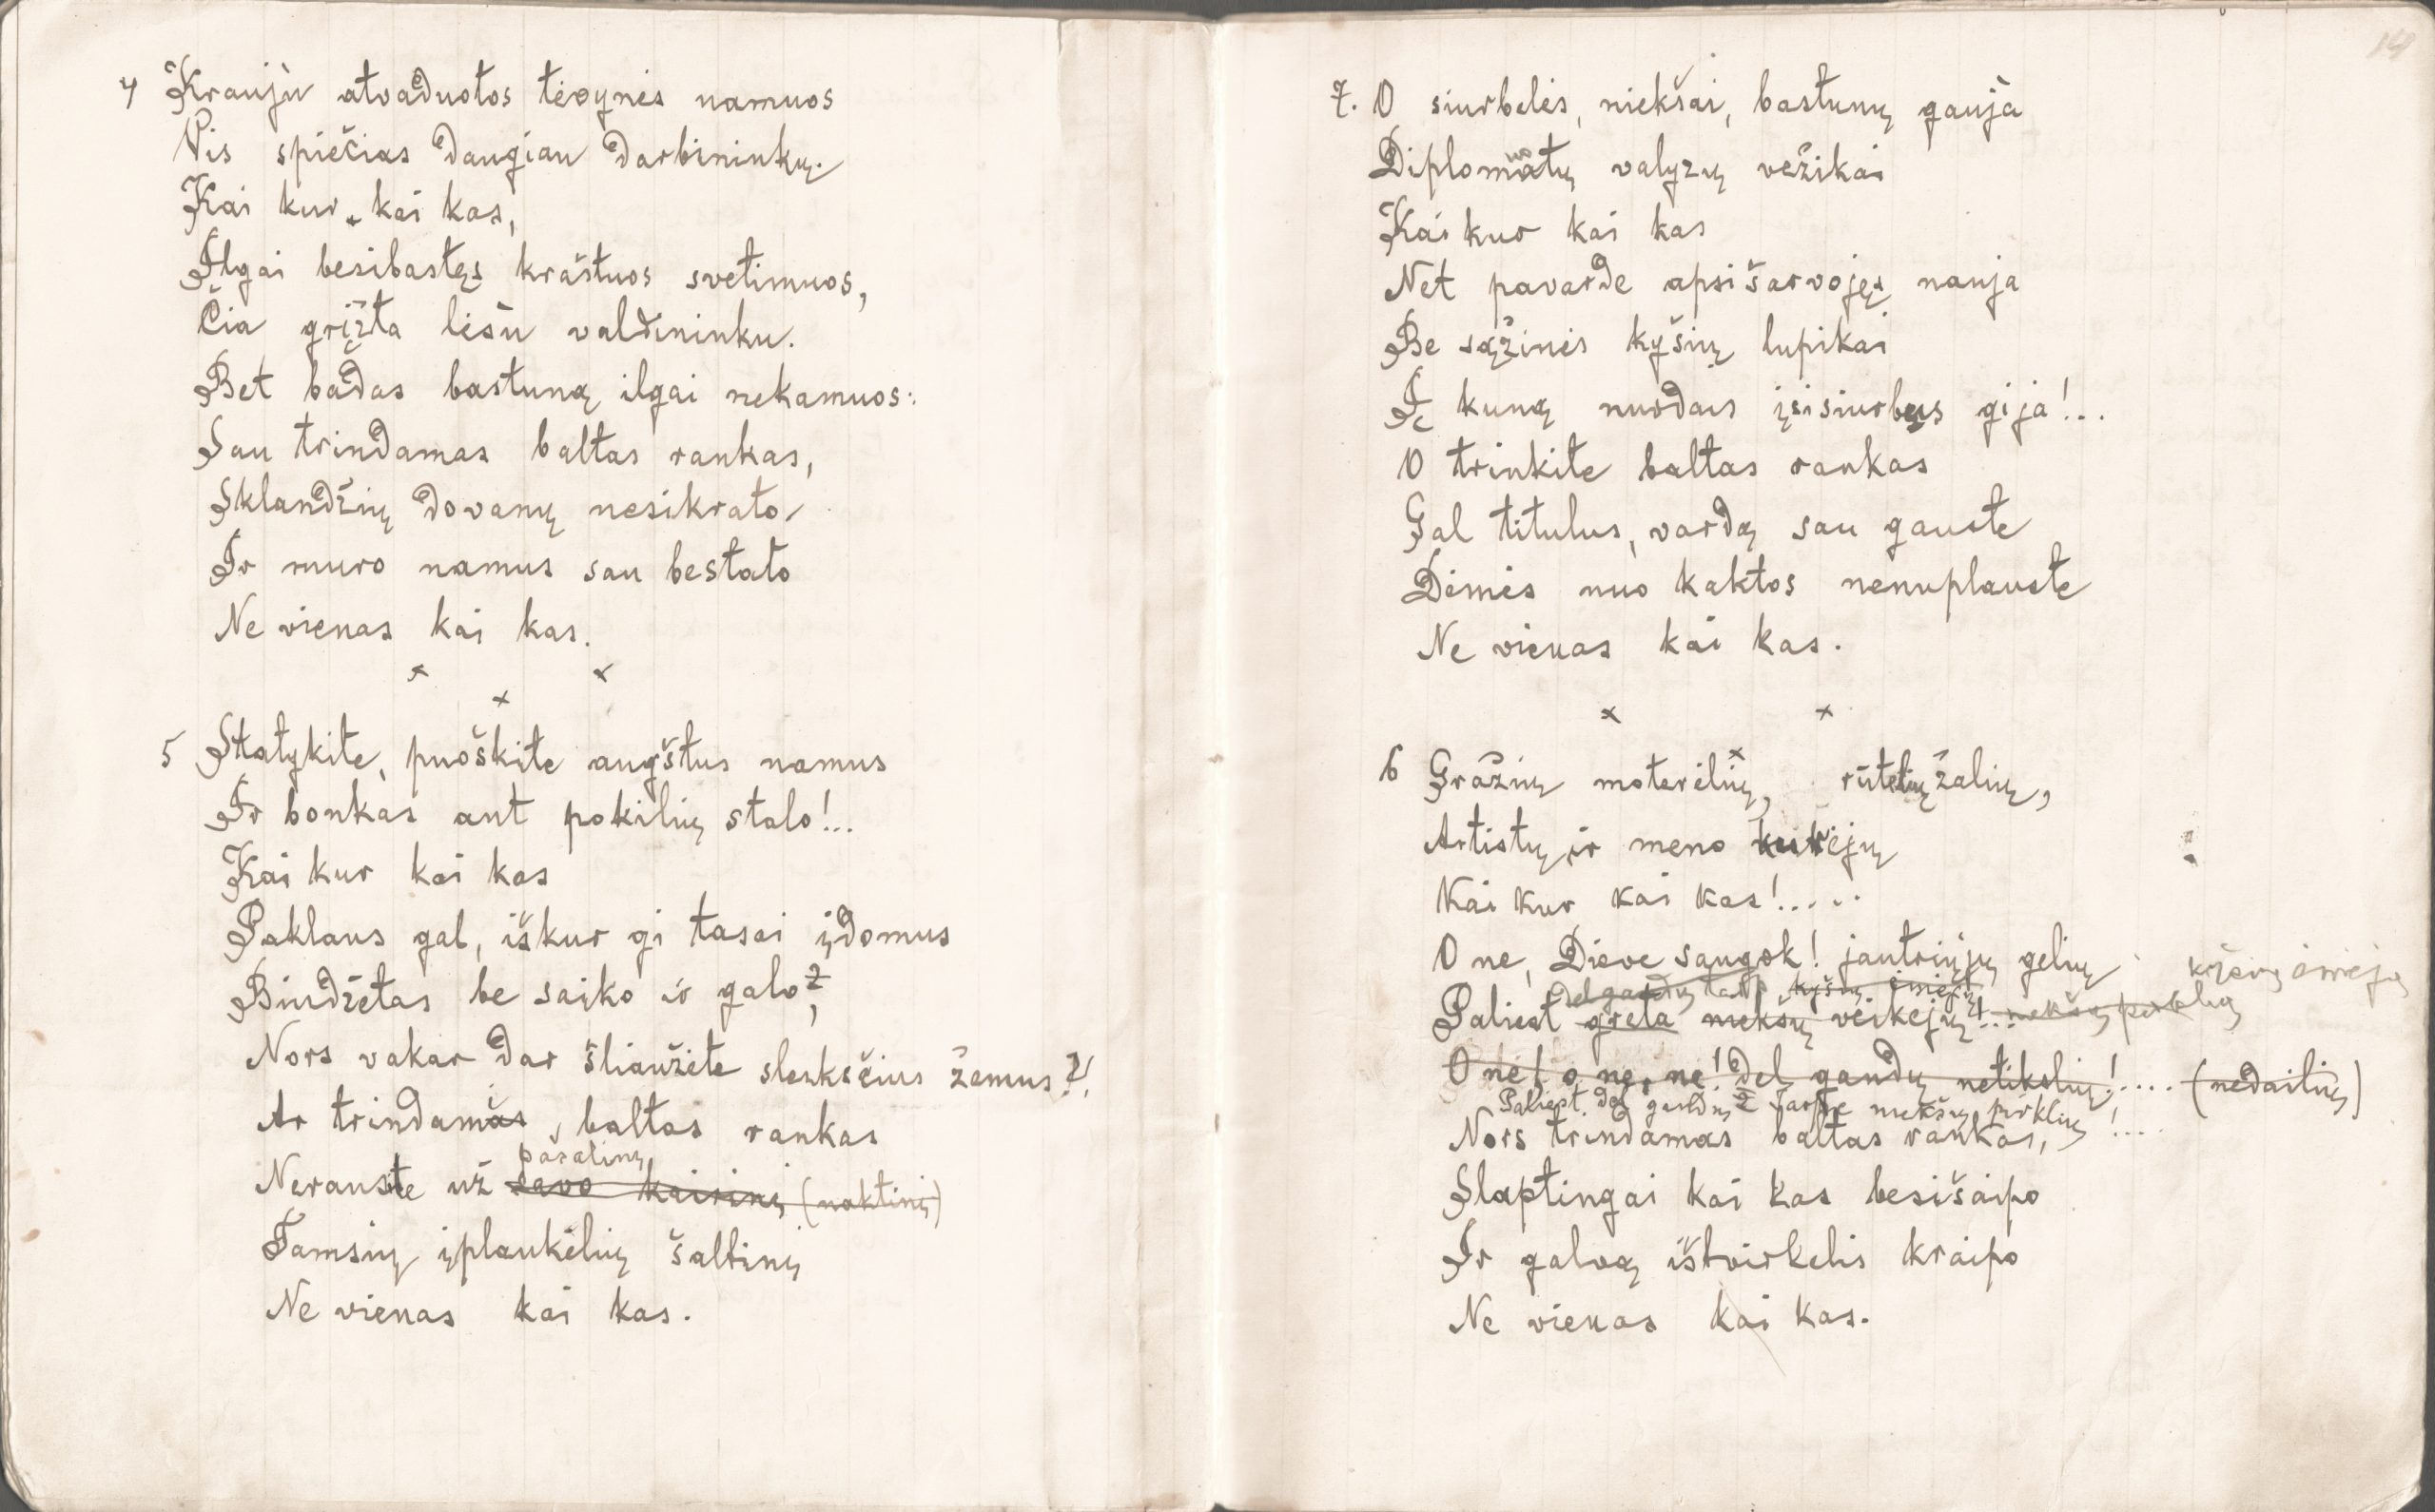 4 Krauju atvaduotos tėvynės namuos
Vis spiečias daugiau darbininkų.
Kai kur kai kas,
Ilgai besibastęs kraštuos svetimuos,
Čia grįžta lėšų valdininku.
Bet badas bastuną ilgai nekamuos:
Sau trindamas baltas rankas,
Sklandžių dovanų nesikrato
Ir muro namus sau bestato
Ne vienas kai kas.
x x
x
5 Statykite, puoškite augštus namus
Ir bonkas ant pokilių stalo!..
Kai kur kai kas
Paklaus gal, iškur gi tasai įdomus
Biudžetas be saiko ir galo?,
Nors vakar dar šliaužėte slenksčius žemus?!
Ar trindamas, baltas rankas
pašalinį
Nerauste už savo kairinį (naktinį)
Tamsių įplaukėlių šaltinį
Ne vienas kai kas.
14
7. O siurbelės, niekšai, bastunų gauja
Diplomatų valyzų vežikai
Kai kur kai kas
Net pavarde apsišarvoję nauja
Be sąžinės kyšių lupikai
Į kuną nuodais įsisiurbus gija!...
O trinkite baltas rankas
Gal titulus, vardą sau gauste
Dėmės nuo kaktos nenuplauste
Ne vienas kai kas.
x x
x
6 Gražių moterėlių, rūtelių žalių,
Artistų ir meno kurėjų
Kai kur kai kas!.....
O ne, Dieve saugok! jautriųjų gėlių
dėl gandų kyšių ėmėjų
Paliest greta niekšų veikėjų?!... niekšų pirklių
O ne! o ne, ne! dėl gandų netikslių!.... (nedailių)
Paliest dėl gandų niekšų pirklių!...
Nors trindamas baltas rankas,
Slaptingai kai kas besišaipo
Ir galvą ištvirkėlis kraipo
Ne vienas kai kas.